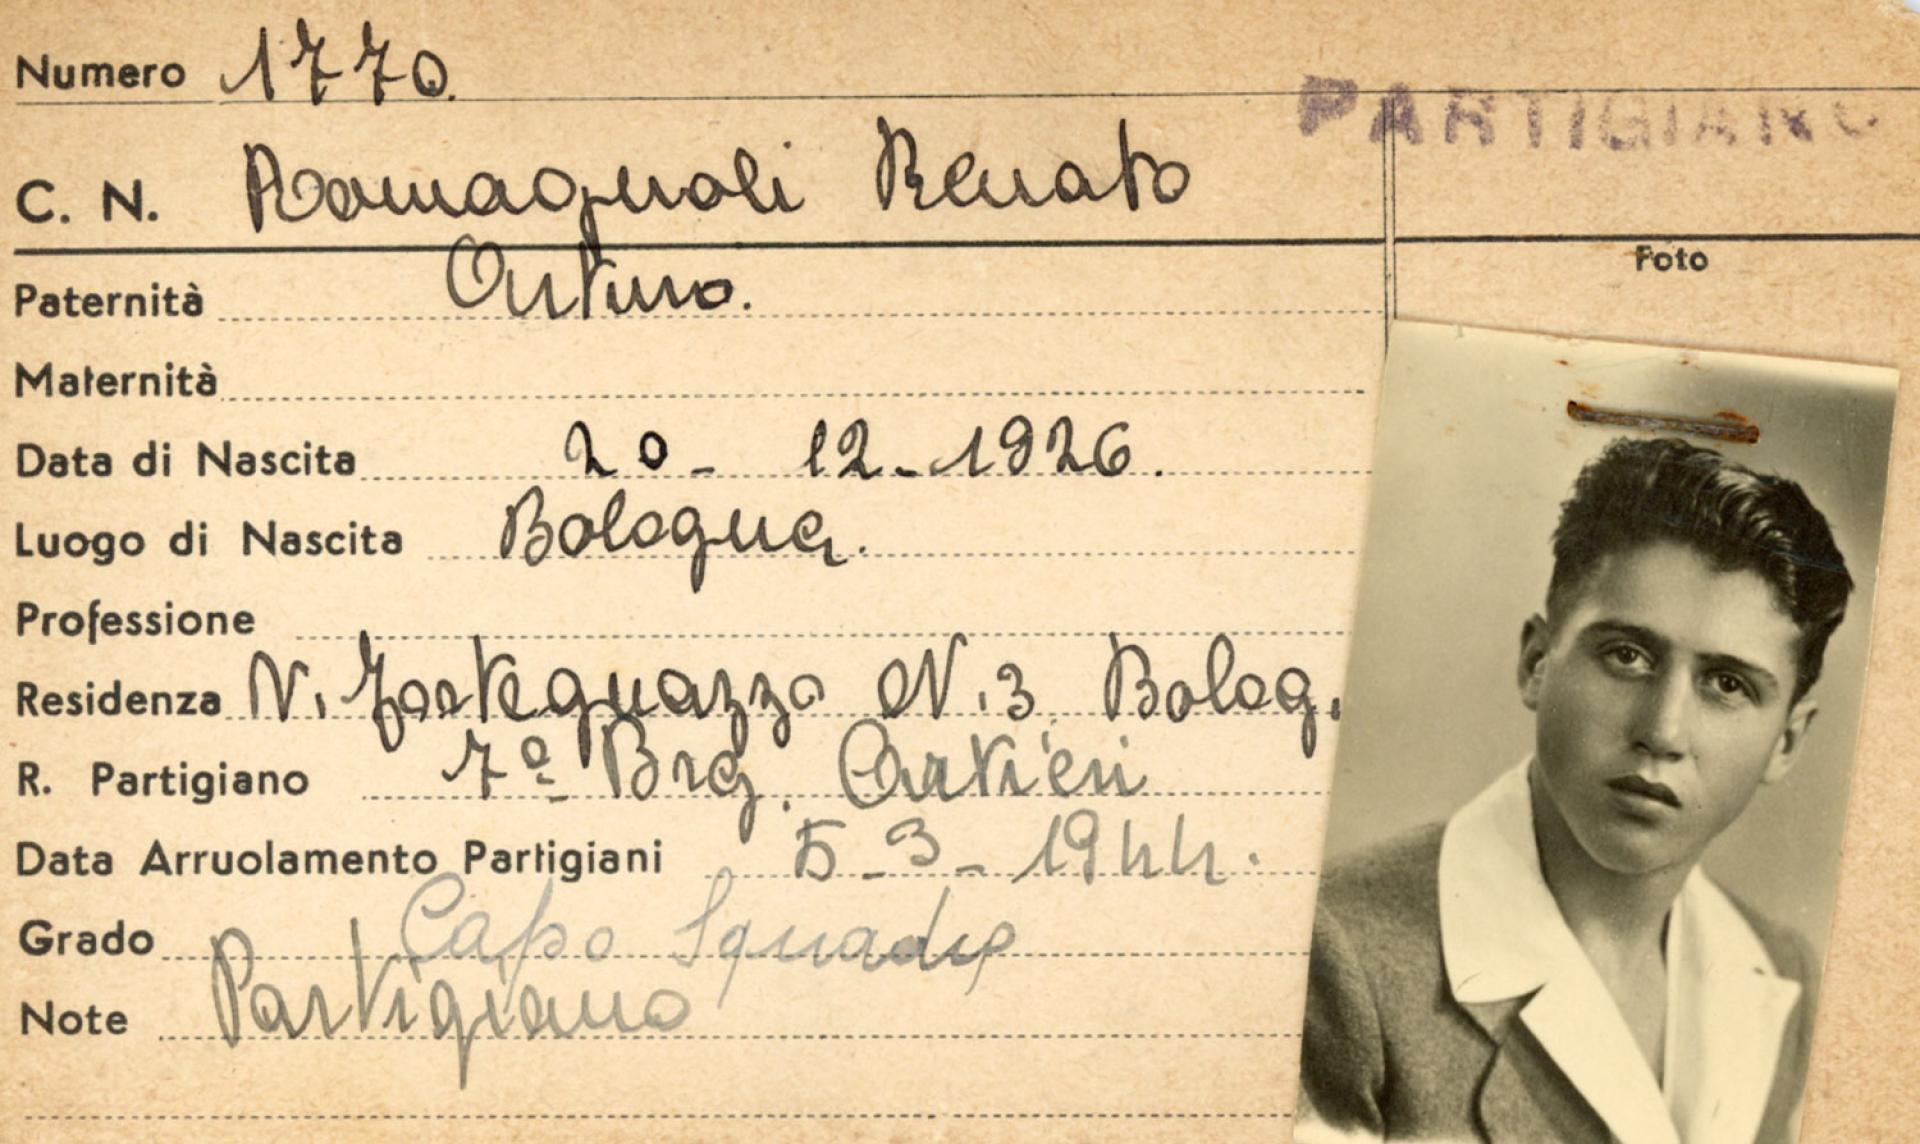 Numero 1770.
PARTIGIANO
C. N. Romagnoli Renato
Foto
Paternità Arturo.
Maternità
Data di Nascita 20 - 12 - 1926.
Luogo di Nascita Bologna.
Professione
Residenza N. 3 Bolog.
R. Partigiano 7ª Brg. Artieri
Data Arruolamento Partigiani 5 - 3 - 1944.
Grado Capo Squadra
Note Partigiano